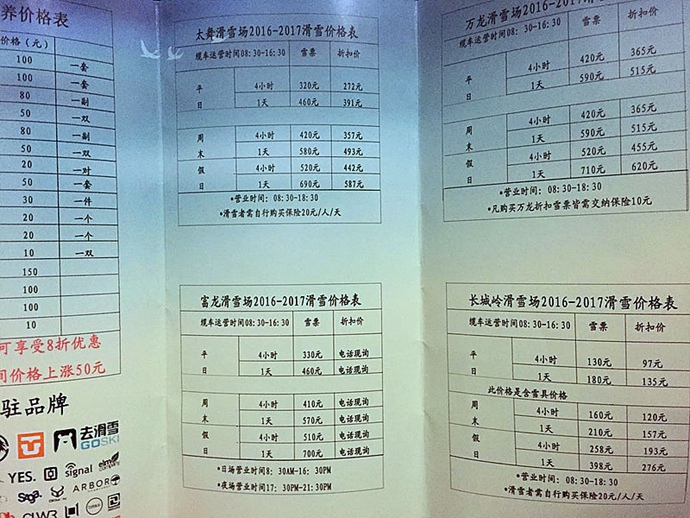 养价格表
价格（元）
100 一套
100 一套
80 一副
50 一双
80 一副
50 一双
20 一对
50 一套
30 一件
20 一个
20 一个
10 一双
150
100
100
10
可享受8折优惠
间价格上涨50元
驻品牌
去滑雪
GOSKI
YES.
signal
elm
ARBOR
太舞滑雪场2016-2017滑雪价格表
缆车运营时间08:30-16:30 雪票 折扣价
平日 4小时 320元 272元
1天 460元 391元
周末 4小时 420元 357元
1天 580元 493元
假日 4小时 520元 442元
1天 690元 587元
*营业时间：08:30-18:30
*滑雪者需自行购买保险20元/人/天
富龙滑雪场2016-2017滑雪价格表
缆车运营时间08:30-16:30 雪票 折扣价
平日 4小时 330元 电话现询
1天 460元 电话现询
周末 4小时 410元 电话现询
1天 570元 电话现询
假日 4小时 510元 电话现询
1天 700元 电话现询
*日场营业时间8：30AM-16：30PM
*夜场营业时间17：30PM-21:30PM
万龙滑雪场2016-2017滑雪价格表
缆车运营时间08:30-16:30 雪票 折扣价
平日 4小时 420元 365元
1天 590元 515元
周末 4小时 420元 365元
1天 590元 515元
假日 4小时 520元 455元
1天 710元 620元
*营业时间：08:30-18:30
*凡购买万龙折扣雪票皆需交纳保险10元
长城岭滑雪场2016-2017滑雪价格表
缆车运营时间08:30-16:30 雪票 折扣价
平日 4小时 130元 97元
1天 180元 135元
此价格是含雪具价格
周末 4小时 160元 120元
1天 210元 157元
假日 4小时 258元 193元
1天 398元 276元
*营业时间：08:30-18:30
*滑雪者需自行购买保险20元/人/天